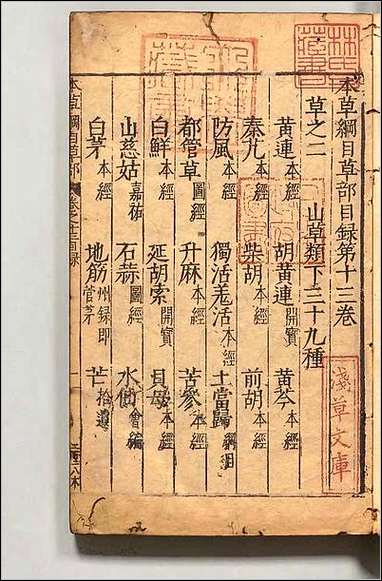 本草綱目草部目録第十三卷
草之二 山草類下三十九種
黄連本經 胡黄連開寶 黄芩本經
秦艽本經 柴胡本經 前胡本經
防風本經 獨活羌活本經 土當歸綱目
都管草圖經 升麻本經 苦參本經
白鮮本經 延胡索開寶 貝母本經
山慈姑嘉祐 石蒜圖經 水仙會編
白茅本經 地筋別録即菅茅 芒拾遺
本草綱目草部
淺草文庫
林氏藏書